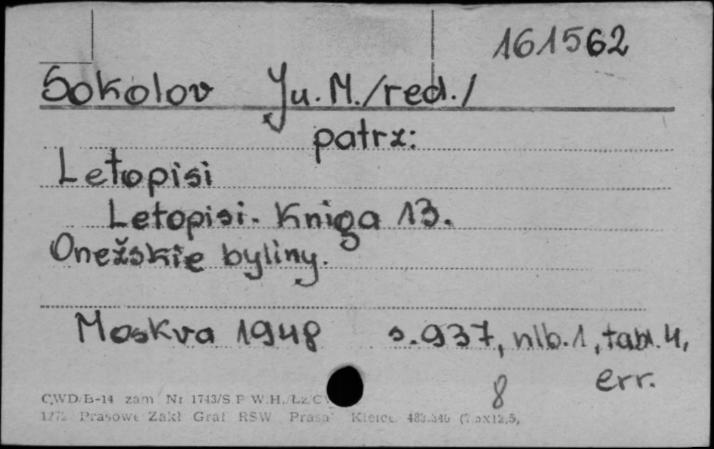 161562
Sokolov Ju. M. /red./
patrz:
Letopisi
Letopisi. Kniga 13.
Onežskie byliny.
Moskva 1948 s. 937, nlb. 1, tabl. 4,
err.
8
CWD/B-14 zam Nr 1743/S P W.H.
Prasowe Zakł Graf RSW Prasa Kielce